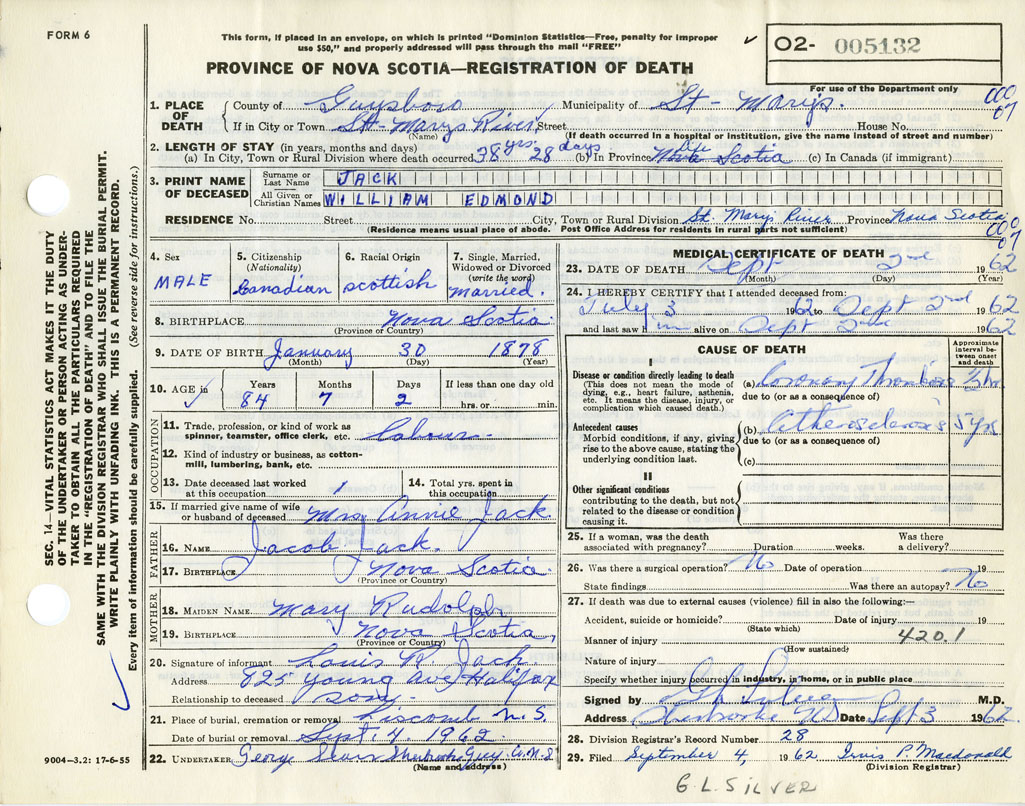 FORM 6
This form, if placed in an envelope, on which is printed "Dominion Statistics—Free, penalty for improper
use $50," and properly addressed will pass through the mail "FREE"
O2- 005132
PROVINCE OF NOVA SCOTIA—REGISTRATION OF DEATH
For use of the Department only
1. PLACE OF DEATH
County of Guysboro Municipality of St- Marys.
If in City or Town St- Marys River Street House No.
(Name) (If death occurred in a hospital or institution, give the name instead of street and number)
000
07
2. LENGTH OF STAY (in years, months and days)
(a) In City, Town or Rural Division where death occurred 38 yrs. 28 days (b) In Province Life Nova Scotia (c) In Canada (if immigrant)
3. PRINT NAME OF DECEASED
Surname or Last Name JACK
All Given or Christian Names WILLIAM EDMOND
RESIDENCE No. Street City, Town or Rural Division St. Marys River Province Nova Scotia
(Residence means usual place of abode. Post Office Address for residents in rural parts not sufficient)
000
07
4. Sex MALE
5. Citizenship (Nationality) Canadian
6. Racial Origin Scottish
7. Single, Married, Widowed or Divorced (write the word) Married.
8. BIRTHPLACE Nova Scotia
(Province or Country)
9. DATE OF BIRTH January 30 1878
(Month) (Day) (Year)
10. AGE in Years 84 Months 7 Days 2 If less than one day old hrs. or min.
OCCUPATION
11. Trade, profession, or kind of work as spinner, teamster, office clerk, etc. Labour
12. Kind of industry or business, as cotton-mill, lumbering, bank, etc.
13. Date deceased last worked at this occupation
14. Total yrs. spent in this occupation
15. If married give name of wife or husband of deceased Mrs Annie Jack
FATHER
16. NAME Jacob Jack.
17. BIRTHPLACE Nova Scotia
(Province or Country)
MOTHER
18. MAIDEN NAME Mary Rudolph
19. BIRTHPLACE Nova Scotia,
(Province or Country)
20. Signature of informant Louis R. Jack.
Address 825 Young Ave, Halifax
Relationship to deceased Son
21. Place of burial, cremation or removal Liscomb N.S.
Date of burial or removal Sept. 4, 1962
22. UNDERTAKER George
(Name and address)
9004—3.2: 17-6-55
SEC. 14—VITAL STATISTICS ACT MAKES IT THE DUTY
OF THE UNDERTAKER OR PERSON ACTING AS UNDER-
TAKER TO OBTAIN ALL THE PARTICULARS REQUIRED
IN THE "REGISTRATION OF DEATH" AND TO FILE THE
SAME WITH THE DIVISION REGISTRAR WHO SHALL ISSUE THE BURIAL PERMIT.
WRITE PLAINLY WITH UNFADING INK. THIS IS A PERMANENT RECORD.
Every item of information should be carefully supplied. (See reverse side for instructions.)
MEDICAL CERTIFICATE OF DEATH
23. DATE OF DEATH Sept 2nd 1962
(Month) (Day) (Year)
24. I HEREBY CERTIFY that I attended deceased from:
July 3 1962 to Sept 2nd 1962
and last saw him alive on Sept 2nd 1962
CAUSE OF DEATH
Approximate interval between onset and death
I
Disease or condition directly leading to death
(This does not mean the mode of dying, e.g., heart failure, asthenia, etc. It means the disease, injury, or complication which caused death.)
(a) Coronary Thrombosis
due to (or as a consequence of)
Antecedent causes
Morbid conditions, if any, giving rise to the above cause, stating the underlying condition last.
(b) Atherosclerosis 5 yrs
due to (or as a consequence of)
(c)
II
Other significant conditions
contributing to the death, but not related to the disease or condition causing it.
25. If a woman, was the death associated with pregnancy? Duration weeks. Was there a delivery?
26. Was there a surgical operation? No Date of operation 19
State findings Was there an autopsy? No
27. If death was due to external causes (violence) fill in also the following:—
Accident, suicide or homicide? Date of injury 19
(State which)
Manner of injury 420.1
(How sustained)
Nature of injury
Specify whether injury occurred in industry, in home, or in public place
Signed by M.D.
Address Sherbrooke NS Date Sept 3 1962
28. Division Registrar's Record Number 28
29. Filed September 4, 1962 Irvis P. Macdonald
(Division Registrar)
G.L. SILVER